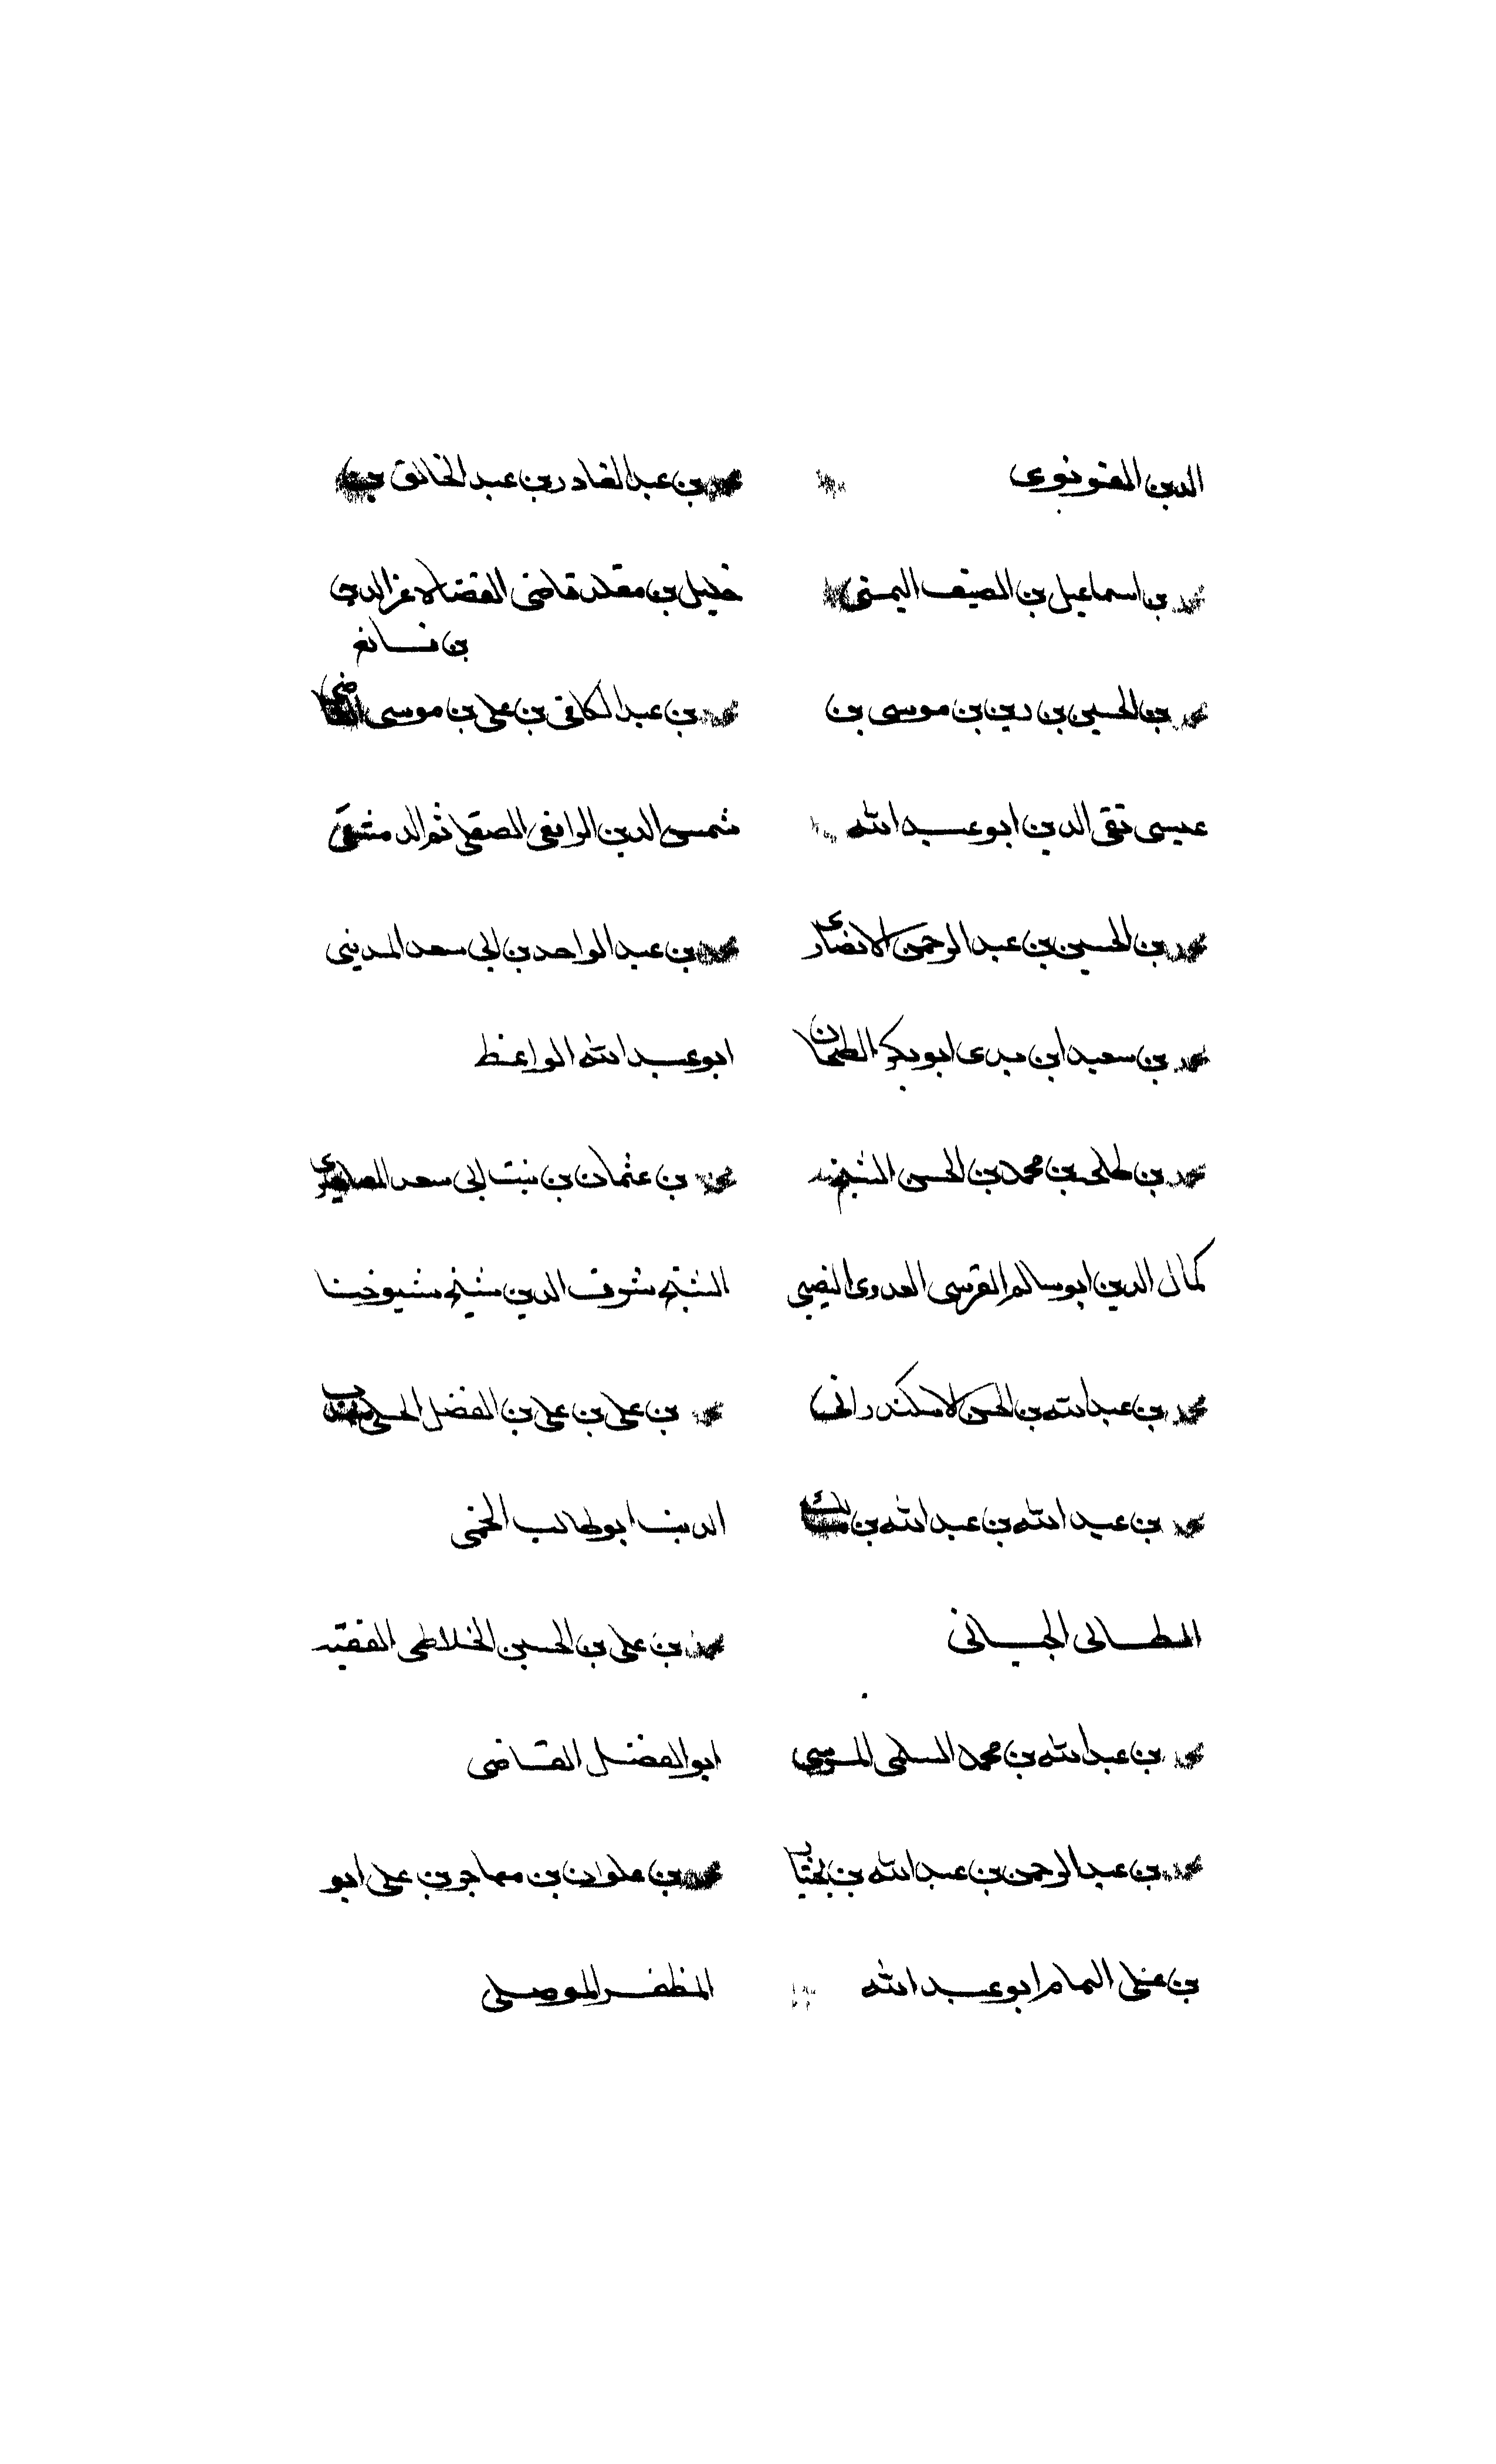 الدين القونوى
محمد بن اسماعيل بن الصيف اليمنى
محمد بن الحسين بن رزين بن موسى بن
عيسى تقى الدين ابو عبد الله
محمد بن الحسين بن عبد الرحمن الانصارى
محمد بن سعيد ابن ابو بكر الطحان
محمد بن طلحة بن محمد بن الحسن الشيخ
كمال الدين ابو سالم القرشى العدوى النصيبى
محمد بن عبد الله بن الحسن الاسكندرانى
محمد بن عبد الله بن عبد الله بن مالك
الطائى الجيانى
محمد بن عبد الله بن محمد السلمى المرسى
محمد بن عبد الرحمن بن عبد الله بن
بن على ابو عبد الله
محمد بن عبد القادر بن عبد الخالق بن
خليل بن مقلد قاضى القضاة عز الدين
بن
محمد بن عبد الكافى بن على بن موسى القاضى
شمس الدين الصقلى ثم الدمشقى
محمد بن عبد الواحد بن ابى سعد المدينى
ابو عبد الله الواعظ
محمد بن عثمان بن بنت ابى سعد المصرى
الشيخ شرف الدين شيخ شيوخنا
محمد بن على بن على بن الفضل الحلى مهذب
الدين ابو طالب الخيمى
محمد بن على بن الحسين الخلاطى الفقيه
ابو الفضل القاضى
محمد بن علوان بن مهاجر بن على ابو
المظفر الموصلى